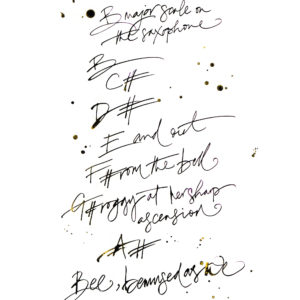 B major scale on
the saxophone
B
C#
D#
E and out
F#rom the bell
G#roggy at her sharp
ascension
A#
Bee, bemused as we